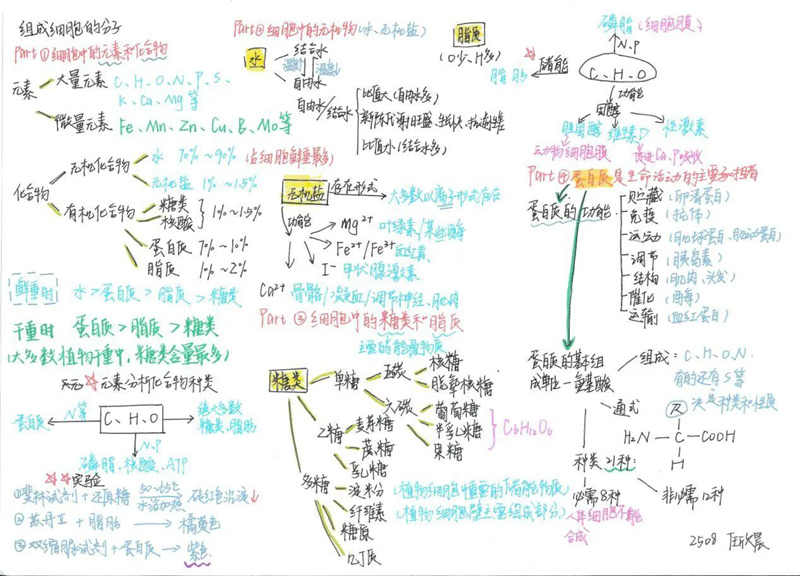 组成细胞的分子
Part① 细胞中的元素和化合物
元素
大量元素 C、H、O、N、P、S、
K、Ca、Mg等
微量元素 Fe、Mn、Zn、Cu、B、Mo等
化合物
无机化合物
水 70%~90% (占细胞鲜重最多)
无机盐 1%~1.5%
有机化合物
糖类
核酸
} 1%~1.5%
蛋白质 7%~10%
脂质 1%~2%
鲜重时 水>蛋白质>脂质>糖类
干重时 蛋白质>脂质>糖类
(大多数植物干重中,糖类含量最多)
元素分析化合物种类
蛋白质 N等 C、H、O 绝大多数
糖类、脂肪
N、P
磷脂、核酸、ATP
实验
①斐林试剂+还原糖 50~65℃ 水浴加热 砖红色沉淀↓
②苏丹Ⅲ+脂肪 → 橘黄色
③双缩脲试剂+蛋白质 → 紫色
Part② 细胞中的无机物(水、无机盐)
水
结合水
自由水
自由水/结合水
比值大(自由水多)
新陈代谢旺盛,生长快,抗冻性差
比值小(结合水多)
无机盐 存在形式 大多数以离子形式存在
功能
Mg²⁺ 叶绿素/某些酶
Fe²⁺/Fe³⁺ 血红素
I⁻ 甲状腺激素
Ca²⁺ 骨骼/凝血/调节神经、肌肉
Part③ 细胞中的糖类和脂质
主要的能源物质
糖类
单糖
五碳
核糖
脱氧核糖
六碳
葡萄糖
半乳糖
果糖
} C₆H₁₂O₆
二糖
麦芽糖
蔗糖
乳糖
多糖
淀粉 (植物细胞中重要的储能物质)
纤维素 (植物细胞壁主要组成部分)
糖原
几丁质
脂质
(O少、H多)
磷脂 (细胞膜)
N、P
脂肪 储能 C、H、O
功能
固醇
胆固醇 维生素D 性激素
动物细胞膜 促进Ca、P吸收
Part④ 蛋白质是生命活动的主要承担者
蛋白质的功能
贮藏 (卵清蛋白)
免疫 (抗体)
运动 (肌球蛋白、肌动蛋白)
调节 (胰岛素)
结构 (肌肉、头发)
催化 (酶)
运输 (血红蛋白)
蛋白质的基本组
成单位—氨基酸
组成: C、H、O、N.
有的还有S等
通式
R 决定种类和性质
H₂N — C — COOH
H
种类 21种:
必需8种 非必需13种
人体细胞不能
合成
2508